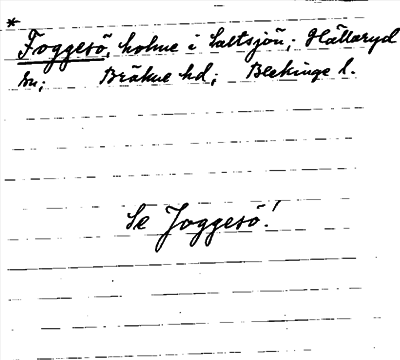 *
Foggesö, holme i Saltsjön; Hällaryd
sn; Bräkne hd; Blekinge l.
Se Joggesö!